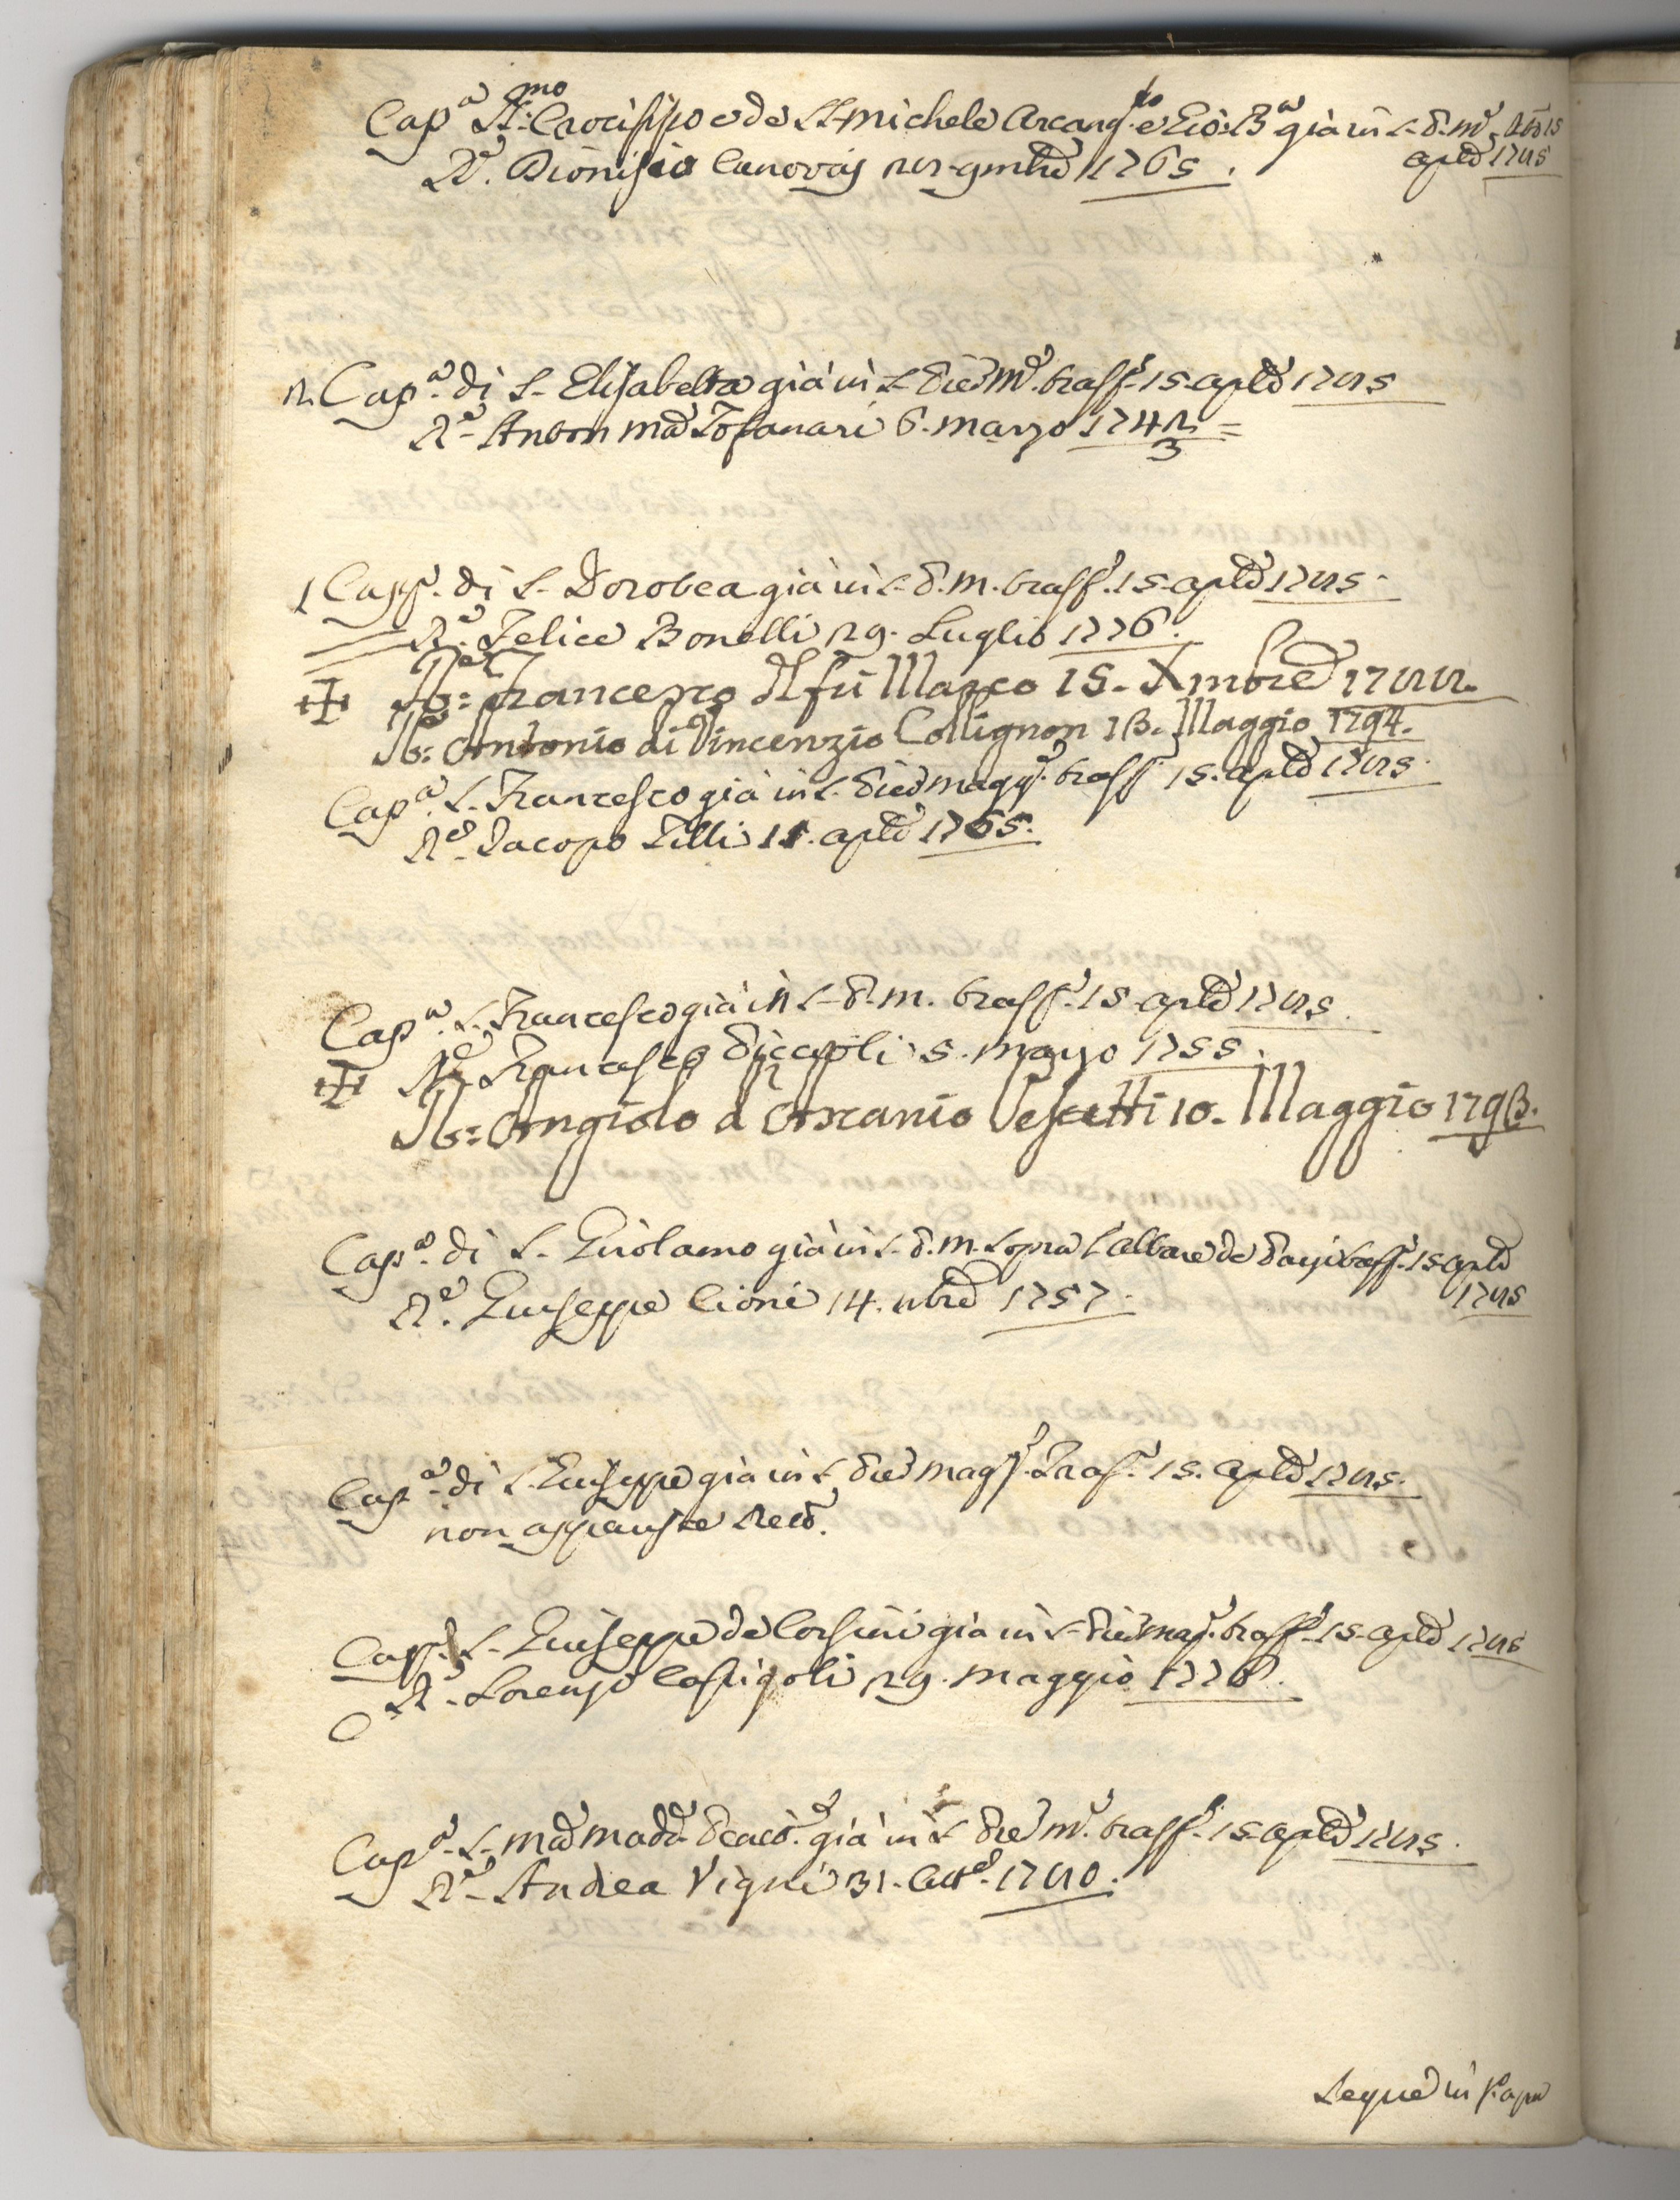 Cap.a SS.mo Crocifisso e di S. Michele Arcang.lo e Gio: B.a già in S. d. m.e
aple 1785
R.e Dionisio Canovai 22. gmbre 1765.
2. Cap.a di S. Elisabetta già in S. Die m.e trasf. 15. aple 1785
R.e Anton Ma Tofanari 6. marzo 1742/3
1 Capp. di S. Dorotea già in S. d. m. trasf. 15. aple 1785.
R.e Felice Bonelli 29. Luglio 1776.
Re: Francesco del fu Marco 15. Xmbre 1788.
Re: Antonio di Vincenzio Collignon 13. Maggio 1794.
Cap.a S. Francesco già in S. Die magg. trasf. 15. aple 1785.
R.e Jacopo Tilli 11. aple 1765.
Cap.a S. Francesco già in S. d. m. trasf. 15. aple 1785.
R.e Francesco 5. marzo 1755.
Re: Angiolo d'Ascanio 10. Maggio 1793.
Cap.a di S. Girolamo già in S. d. m. sopra l'altare de trasf. 15 aple
1785
R.e Giuseppe Cioni 14. nbre 1757.
Cap.a di S. Giuseppe già in S. Die magg. Trasf. 15. aple 1785.
non apparisce Rett.
Capp. S. Giuseppe de Corsini già in S. Die mag. trasf. 15. aple 1785
R.e Lorenzo 29. maggio 1778.
Cap.a S. Ma Madd. già in S. Die m.e trasf. 15. aple 1785.
R.e Andrea Vigni 31. Ott.e 1780.
Segue in